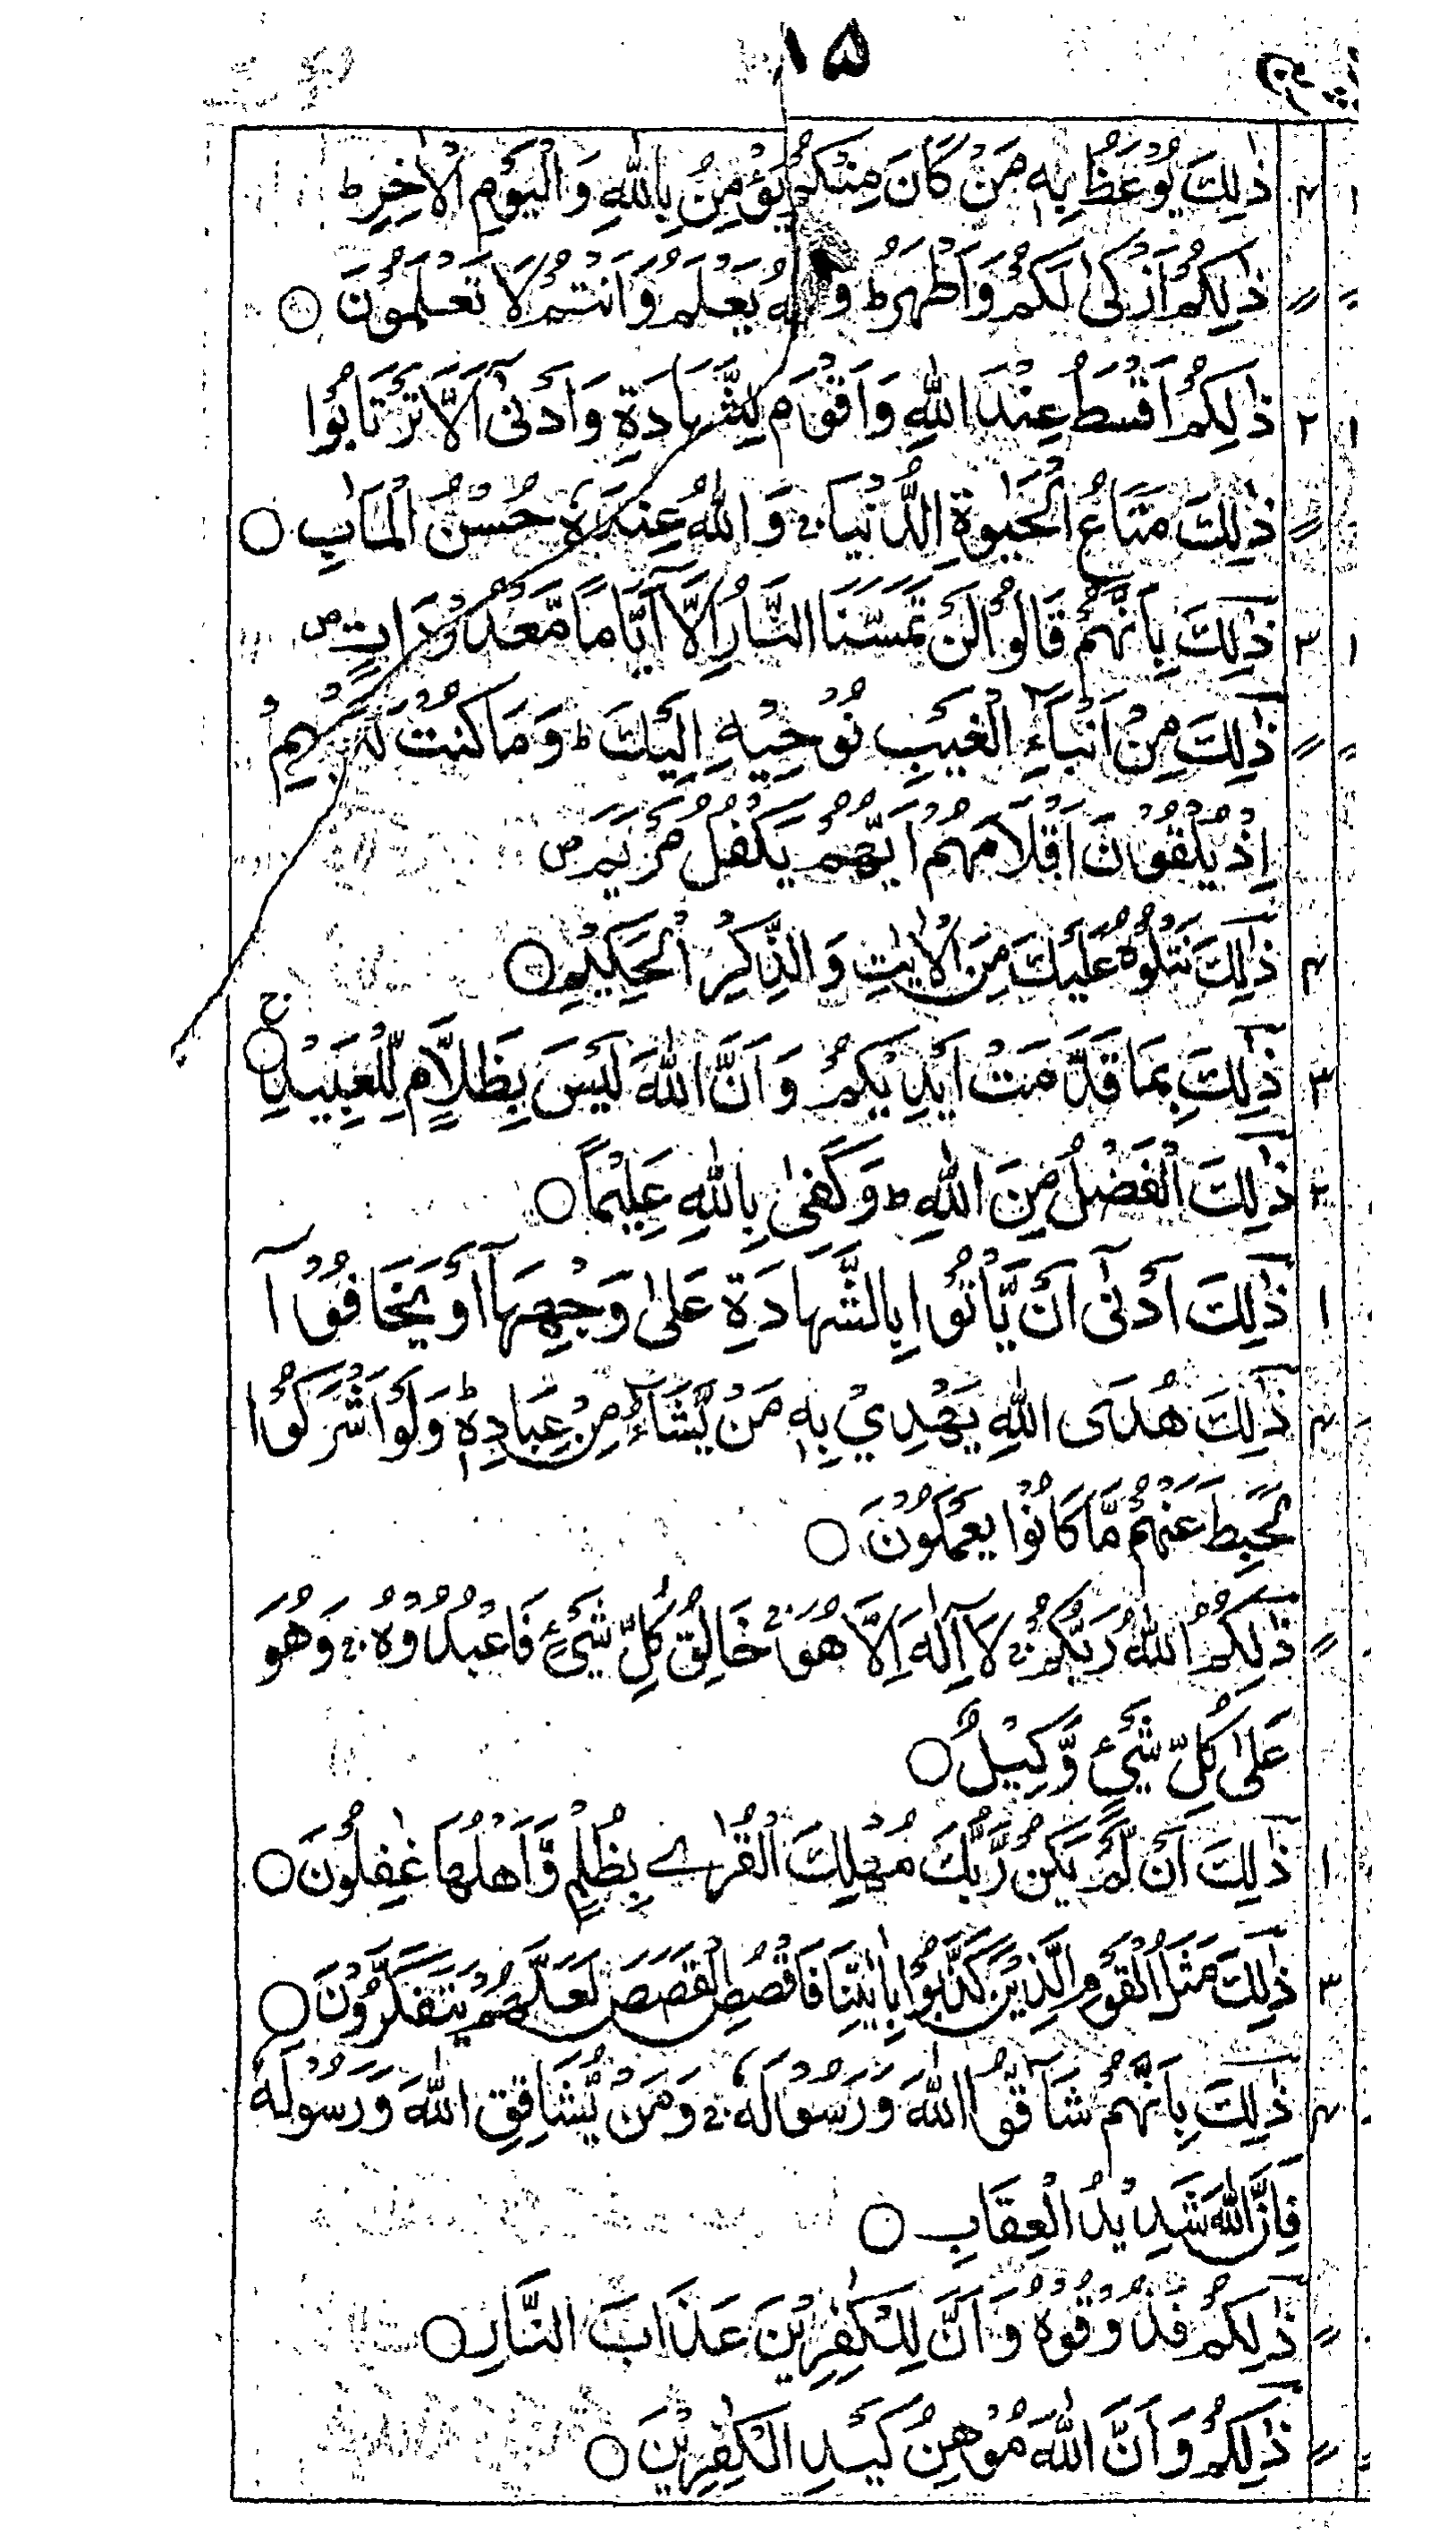 ۱۵
ذٰلِكَ يُوْعَظُ بِهٖ مَنْ كَانَ مِنْكُمْ يُؤْمِنُ بِاللّٰهِ وَالْيَوْمِ الْاٰخِرِ ؕ
ذٰلِكُمْ اَزْكٰى لَكُمْ وَاَطْهَرُ ؕ وَاللّٰهُ يَعْلَمُ وَاَنْتُمْ لَا تَعْلَمُوْنَ ○
۱ ۲ ذٰلِكُمْ اَقْسَطُ عِنْدَ اللّٰهِ وَاَقْوَمُ لِلشَّهَادَةِ وَاَدْنٰٓى اَلَّا تَرْتَابُوْا
ذٰلِكَ مَتَاعُ الْحَيٰوةِ الدُّنْيَا ۚ وَاللّٰهُ عِنْدَهٗ حُسْنُ الْمَاٰبِ ○
۱ ۳ ذٰلِكَ بِاَنَّهُمْ قَالُوْا لَنْ تَمَسَّنَا النَّارُ اِلَّآ اَيَّامًا مَّعْدُوْدَاتٍ ص
ذٰلِكَ مِنْ اَنْبَآءِ الْغَيْبِ نُوْحِيْهِ اِلَيْكَ ؕ وَمَا كُنْتَ لَدَيْهِمْ
اِذْ يُلْقُوْنَ اَقْلَامَهُمْ اَيُّهُمْ يَكْفُلُ مَرْيَمَ ص
۴ ذٰلِكَ نَتْلُوْهُ عَلَيْكَ مِنَ الْاٰيٰتِ وَالذِّكْرِ الْحَكِيْمِ ○
۳ ذٰلِكَ بِمَا قَدَّمَتْ اَيْدِيْكُمْ وَاَنَّ اللّٰهَ لَيْسَ بِظَلَّامٍ لِّلْعَبِيْدِ ○ ج
۲ ذٰلِكَ الْفَضْلُ مِنَ اللّٰهِ ؕ وَكَفٰى بِاللّٰهِ عَلِيْمًا ○
۱ ذٰلِكَ اَدْنٰٓى اَنْ يَّاْتُوْا بِالشَّهَادَةِ عَلٰى وَجْهِهَآ اَوْ يَخَافُوْٓا
۴ ذٰلِكَ هُدَى اللّٰهِ يَهْدِيْ بِهٖ مَنْ يَّشَآءُ مِنْ عِبَادِهٖ ؕ وَلَوْ اَشْرَكُوْا
لَحَبِطَ عَنْهُمْ مَّا كَانُوْا يَعْمَلُوْنَ ○
ذٰلِكُمُ اللّٰهُ رَبُّكُمْ ۚ لَآ اِلٰهَ اِلَّا هُوَ ۚ خَالِقُ كُلِّ شَيْءٍ فَاعْبُدُوْهُ ۚ وَهُوَ
عَلٰى كُلِّ شَيْءٍ وَّكِيْلٌ ○
۱ ذٰلِكَ اَنْ لَّمْ يَكُنْ رَّبُّكَ مُهْلِكَ الْقُرٰى بِظُلْمٍ وَّاَهْلُهَا غٰفِلُوْنَ ○
۳ ذٰلِكَ مَثَلُ الْقَوْمِ الَّذِيْنَ كَذَّبُوْا بِاٰيٰتِنَا فَاقْصُصِ الْقَصَصَ لَعَلَّهُمْ يَتَفَكَّرُوْنَ ○
۴ ذٰلِكَ بِاَنَّهُمْ شَآقُّوا اللّٰهَ وَرَسُوْلَهٗ ۚ وَمَنْ يُّشَاقِقِ اللّٰهَ وَرَسُوْلَهٗ
فَاِنَّ اللّٰهَ شَدِيْدُ الْعِقَابِ ○
ذٰلِكُمْ فَذُوْقُوْهُ وَاَنَّ لِلْكٰفِرِيْنَ عَذَابَ النَّارِ ○
ذٰلِكُمْ وَاَنَّ اللّٰهَ مُوْهِنُ كَيْدِ الْكٰفِرِيْنَ ○